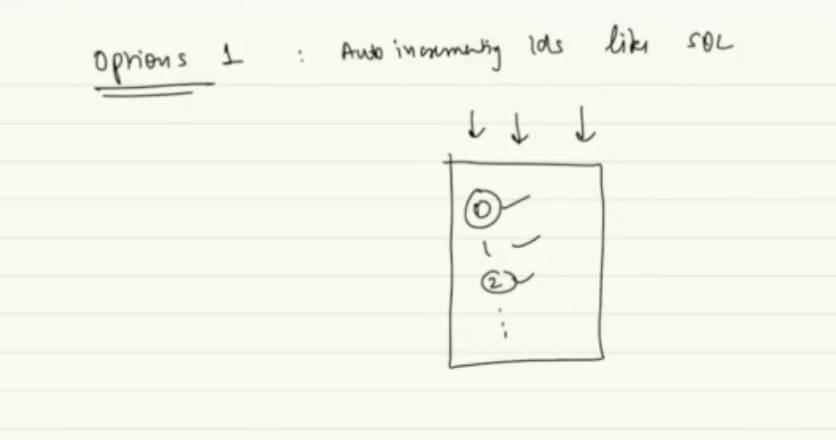 Options 1 : Auto incrementing Ids like SQL
0
1
2